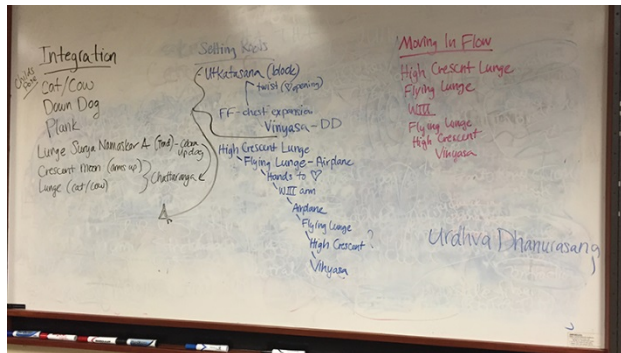 Integration
Childs Pose
Cat/Cow
Down Dog
Plank
Lunge Surya Namaskar A (3rd) - cobra
updog
Crescent Moon (arms up)
Lunge (cat/cow)
Chaturanga
Setting
Utkatasana (block)
twist (♡ opening)
FF - chest expansion
Vinyasa - DD
High Crescent Lunge
Flying Lunge - Airplane
Hands to ♡
WIII arm
Airplane
Flying Lunge
High Crescent ?
Vinyasa
Moving In Flow
High Crescent Lunge
Flying Lunge
WIII
Flying Lunge
High Crescent
Vinyasa
Urdhva Dhanurasana